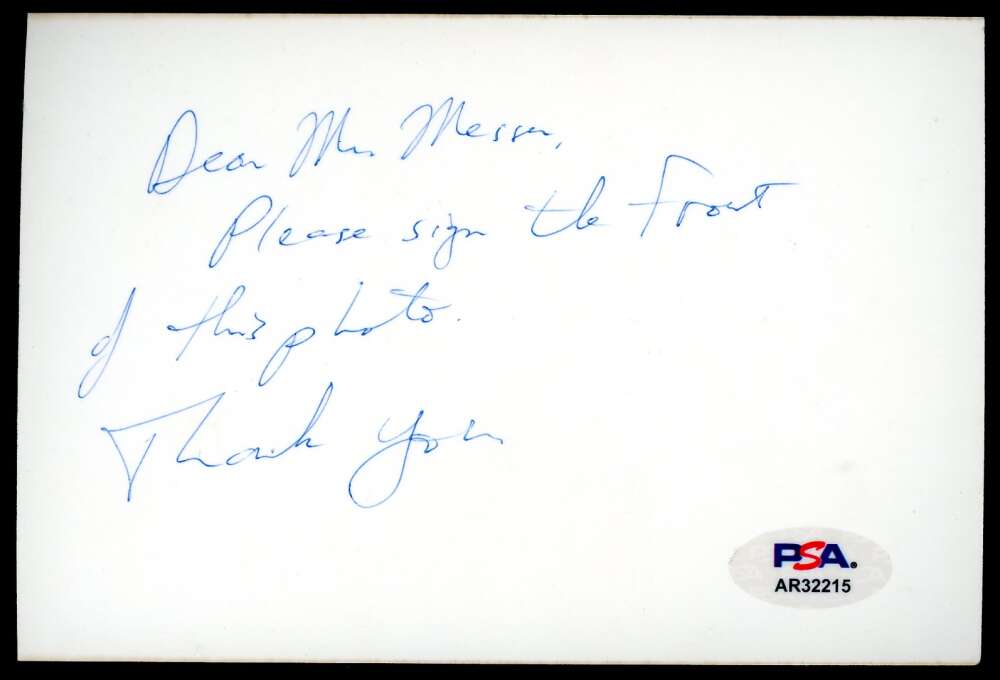 Dear Mr. Messer,
Please sign the front
of this photo.
Thank you
PSA
AR32215